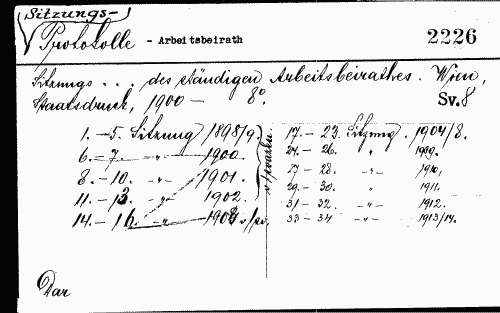 Sitzungs-
Protokolle - Arbeitsbeirath 2226
Sitzungs . . . des ständigen Arbeitsbeirathes. Wien,
Staatsdruck, 1900 — 8°. Sv. 8
1. - 5. Sitzung 1898/9
6. - 7. -"- 1900.
8. - 10. -"- 1901.
11. - 13. -"- 1902.
14. - 16. -"- 1903
17. - 23. Sitzung. 1904/8.
24. - 26. " 1909.
27 - 28. -"- 1910,
29. - 30. " 1911.
31 - 32. -"- 1912.
33 - 34 -"- 1913/14.
Dar